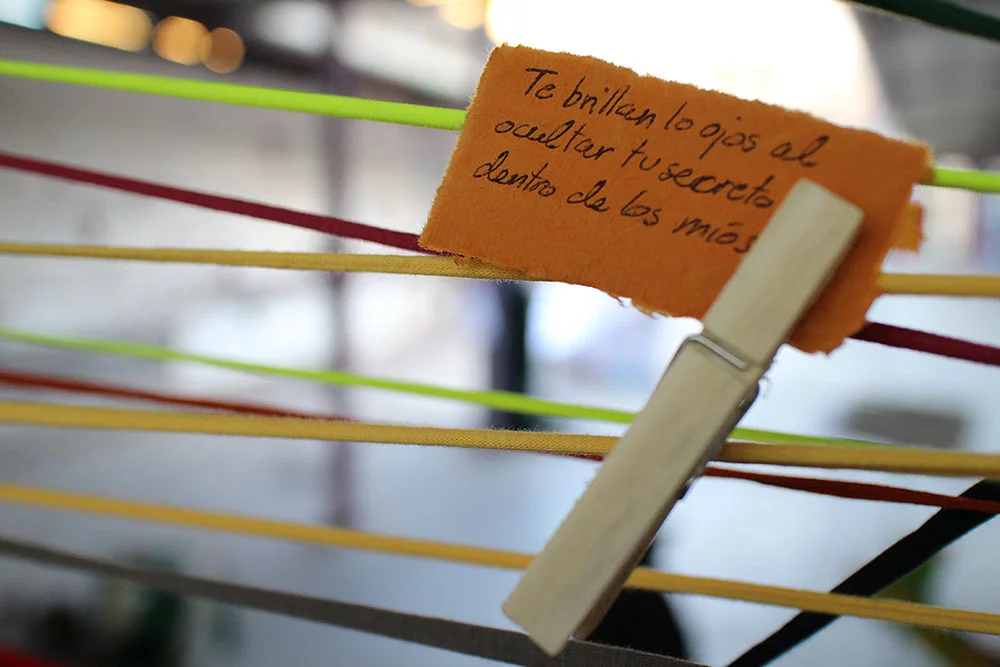 Te brillan lo ojos al
ocultar tu secreto
dentro de los míos